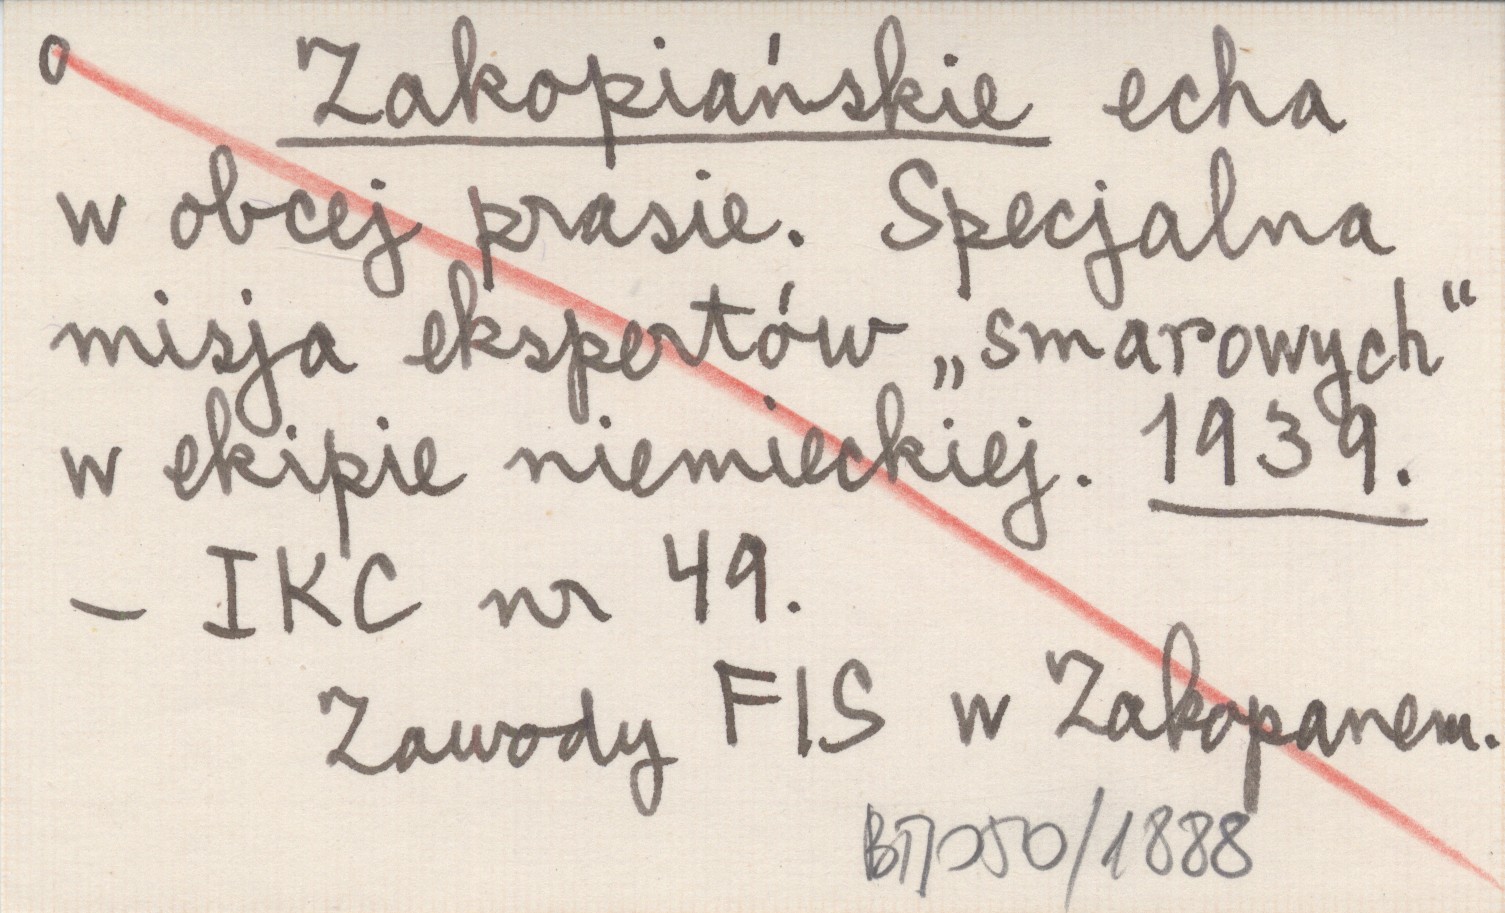 o Zakopiańskie echa
w obcej prasie. Specjalna
misja ekspertów „smarowych“
w ekipie niemieckiej. 1939.
– IKC nr 49.
Zawody FIS w Zakopanem.
/1888